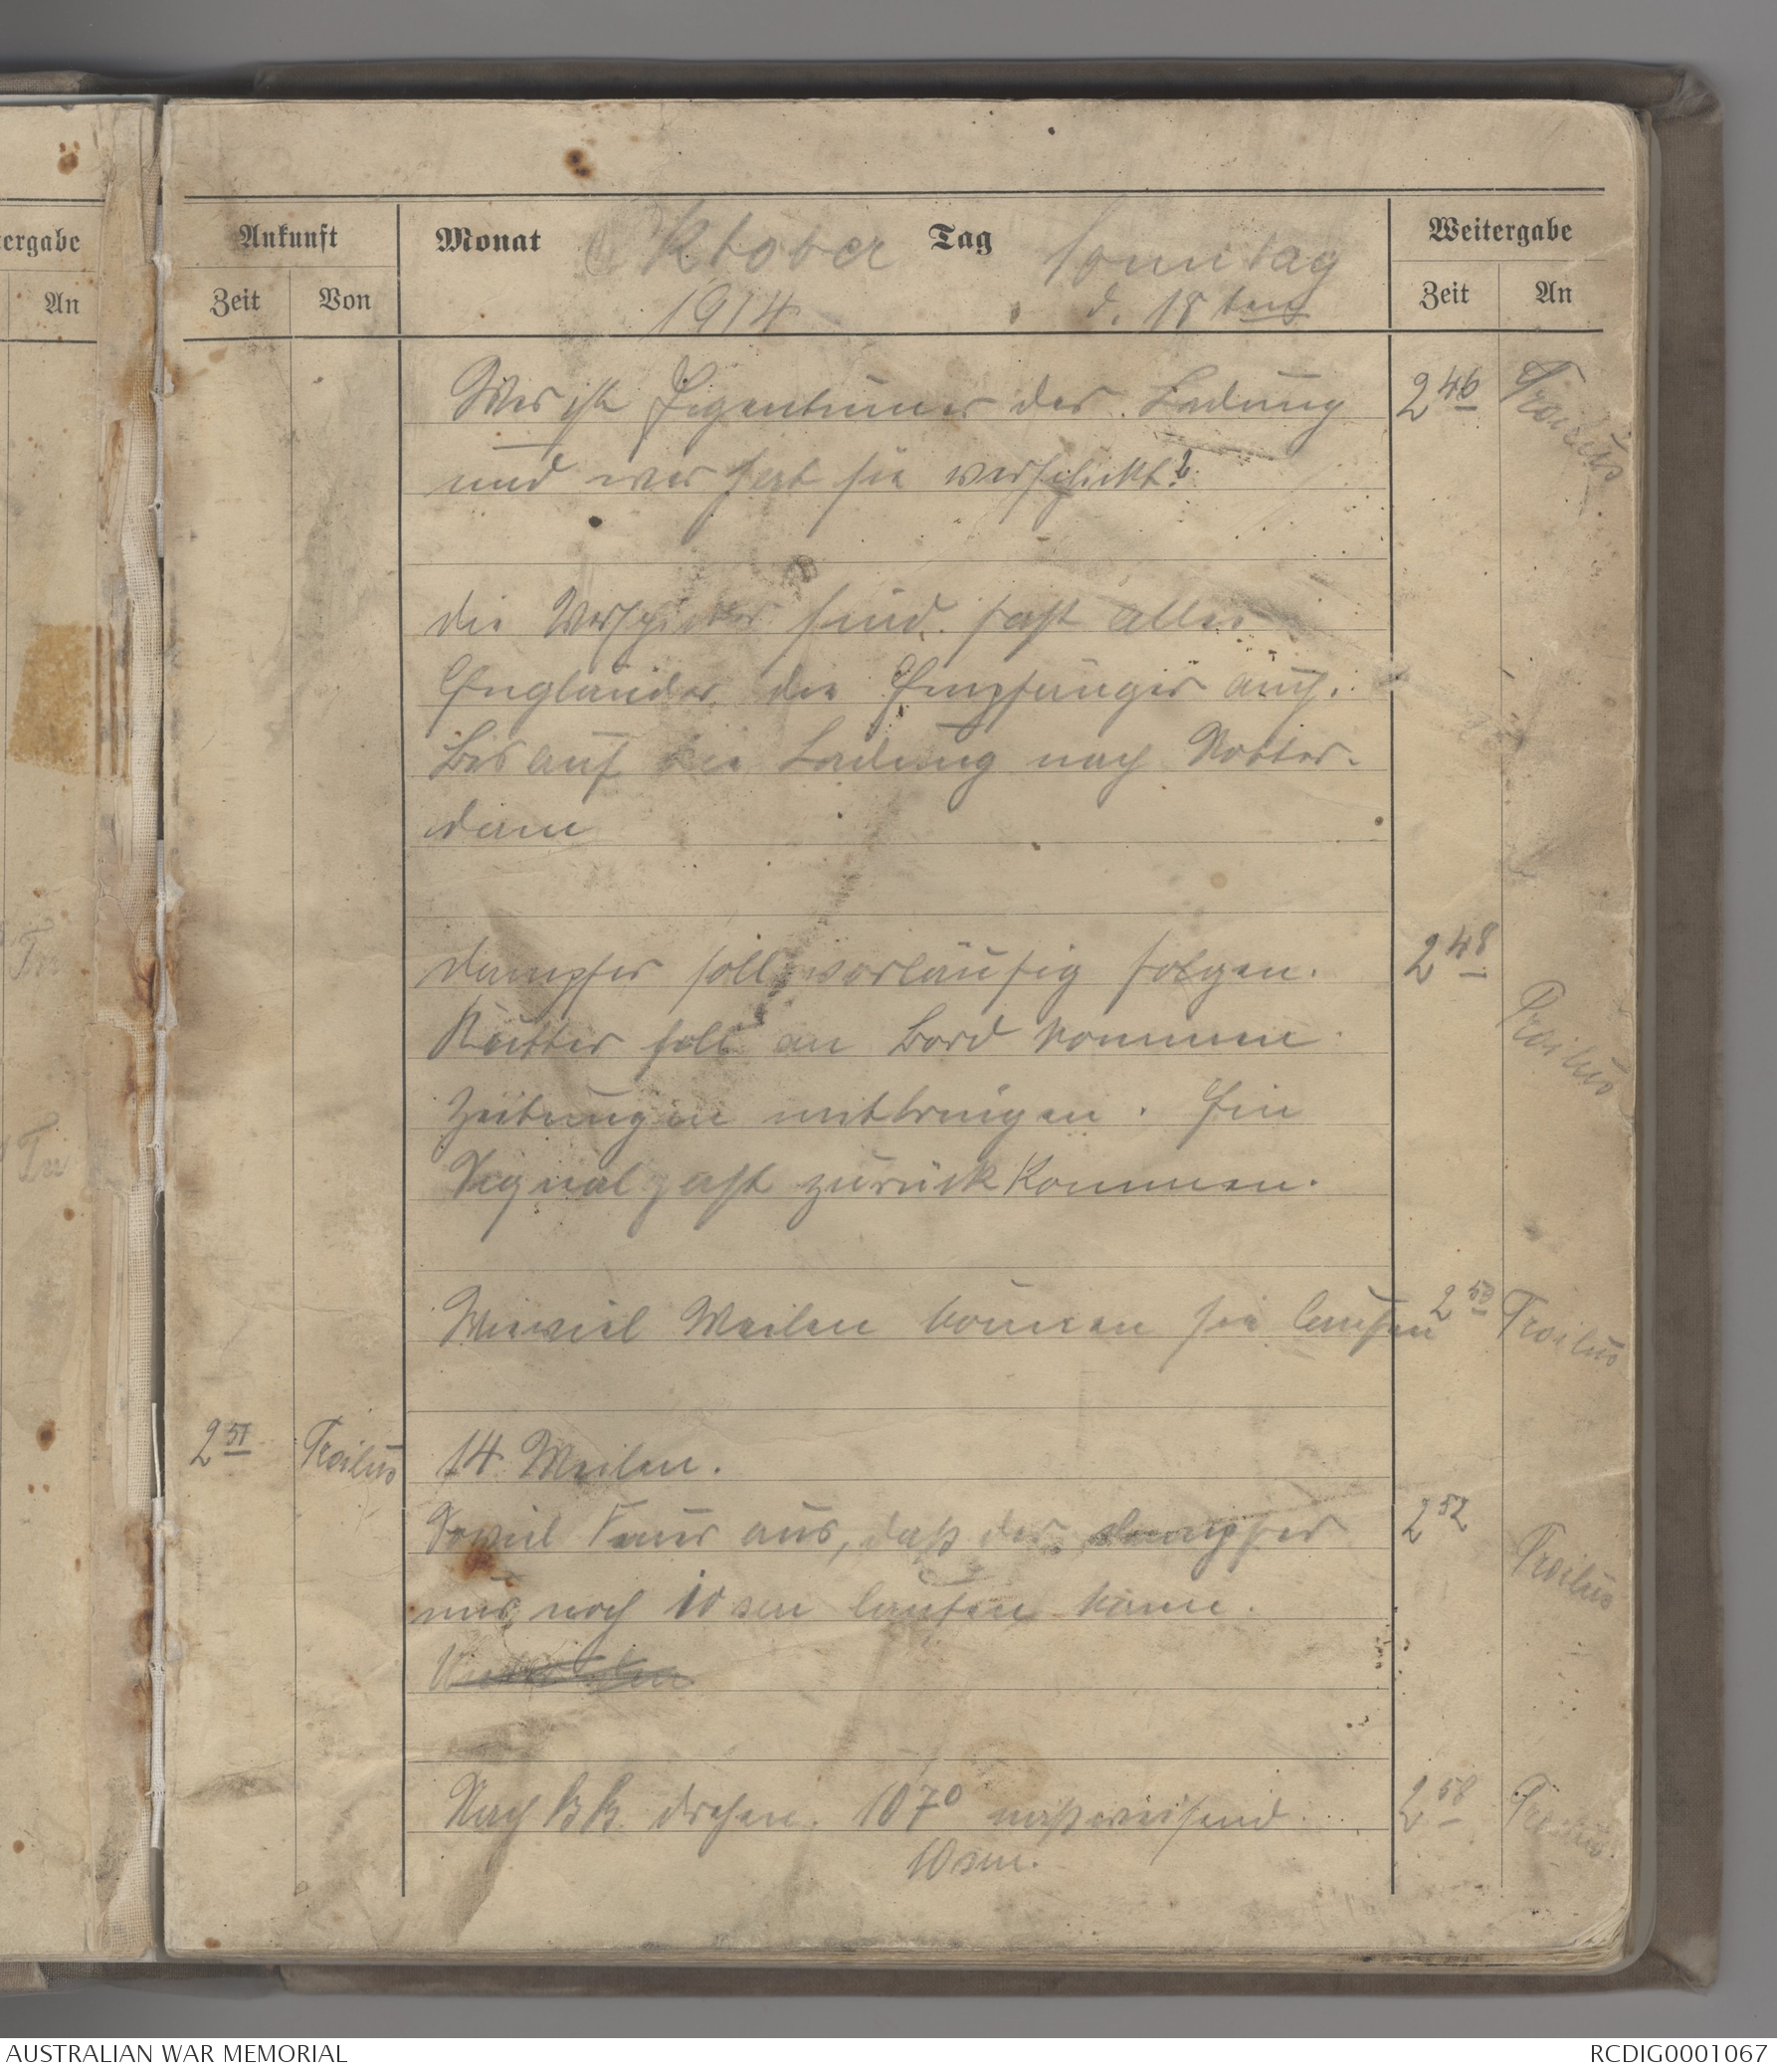 tergabe
An
Tr
Tr
Ankunft
Monat Oktober Tag Sonntag
Weitergabe
Zeit Von
1914 d. 18ten
Zeit An
Wer ist Eigentümer der Ladung 2 46 Troilus
und wer hat sie verschickt?
die Verschicker sind fast alles
Engländer, die Empfänger auch.
Bis auf die Ladung nach Rotter-
dam
Dampfer soll vorläufig folgen. 2 48 Troilus
Kutter soll an Bord kommen
Zeitungen mitbringen. Ein
Signalgast zurückkommen.
Wieviel Meilen können sie laufen 2 50 Troilus
2 51 Troilus 14 Meilen.
Soviel Feuer aus, daß der Dampfer 2 52 Troilus
nur noch 10 sm laufen kann.
Nach B.B. drehen. 107° mißweisend 2 58 Troilus
10 sm.
AUSTRALIAN WAR MEMORIAL
RCDIG0001067